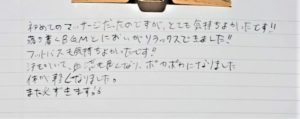 初めてのマッサージだったのですが、とても気持ちよかったです!!
落ち着くBGMとにおいがリラックスできました!!
フットバスも気持ちよかったです!!
汗もかいて、血流も良くなり、ポカポカになりました
体が軽くなりました。
また必ずきます。